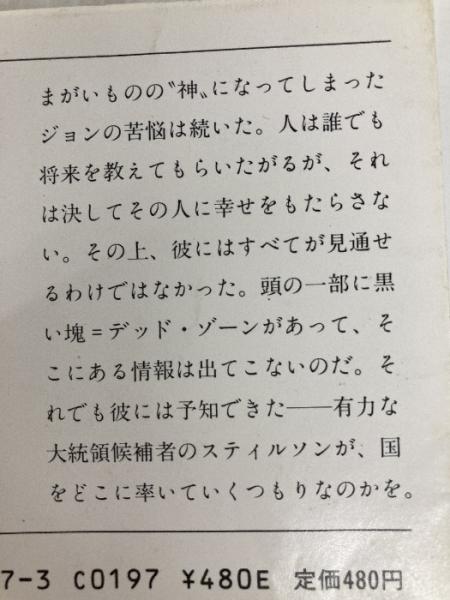 まがいものの〝神〟になってしまった
ジョンの苦悩は続いた。人は誰でも
将来を教えてもらいたがるが、それ
は決してその人に幸せをもたらさな
い。その上、彼にはすべてが見通せ
るわけではなかった。頭の一部に黒
い塊=デッド・ゾーンがあって、そ
こにある情報は出てこないのだ。そ
れでも彼には予知できた——有力な
大統領候補者のスティルソンが、国
をどこに率いていくつもりなのかを。
7-3 C0197 ¥480E 定価480円